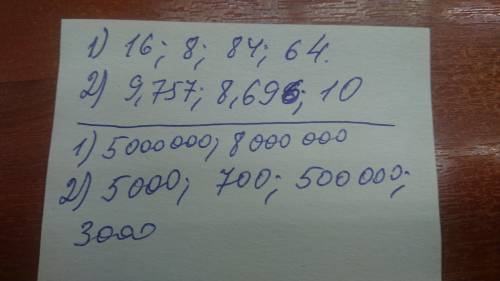 1) 16; 8; 84; 64.
2) 9,757; 8,696; 10
1) 5000000; 8000 000
2) 5000; 700; 500 000;
3000